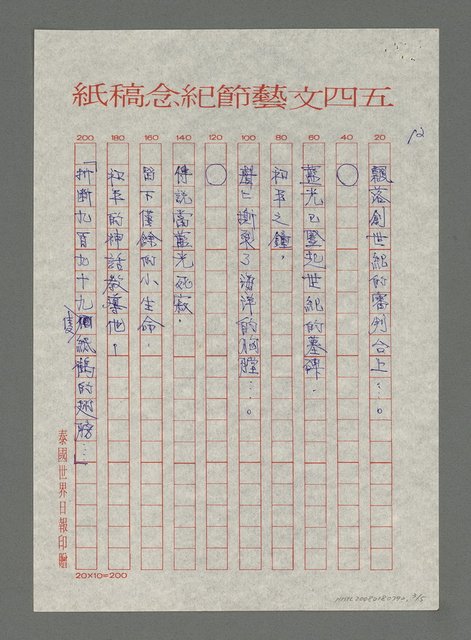 五四文藝節紀念稿紙
200 180 160 140 120 100 80 60 40 20
飄落創世紀的審判台上…。
○
藍光已豎起世紀的墓碑,
和平之鐘,
聲〻撕裂了海洋的胸膛…。
○
傳說當藍光死寂,
留下僅餘的小生命,
和平的神話教導他:
「折斷九百九十九隻紙鶴的翅膀…」
泰國世界日報印贈
20×10=200